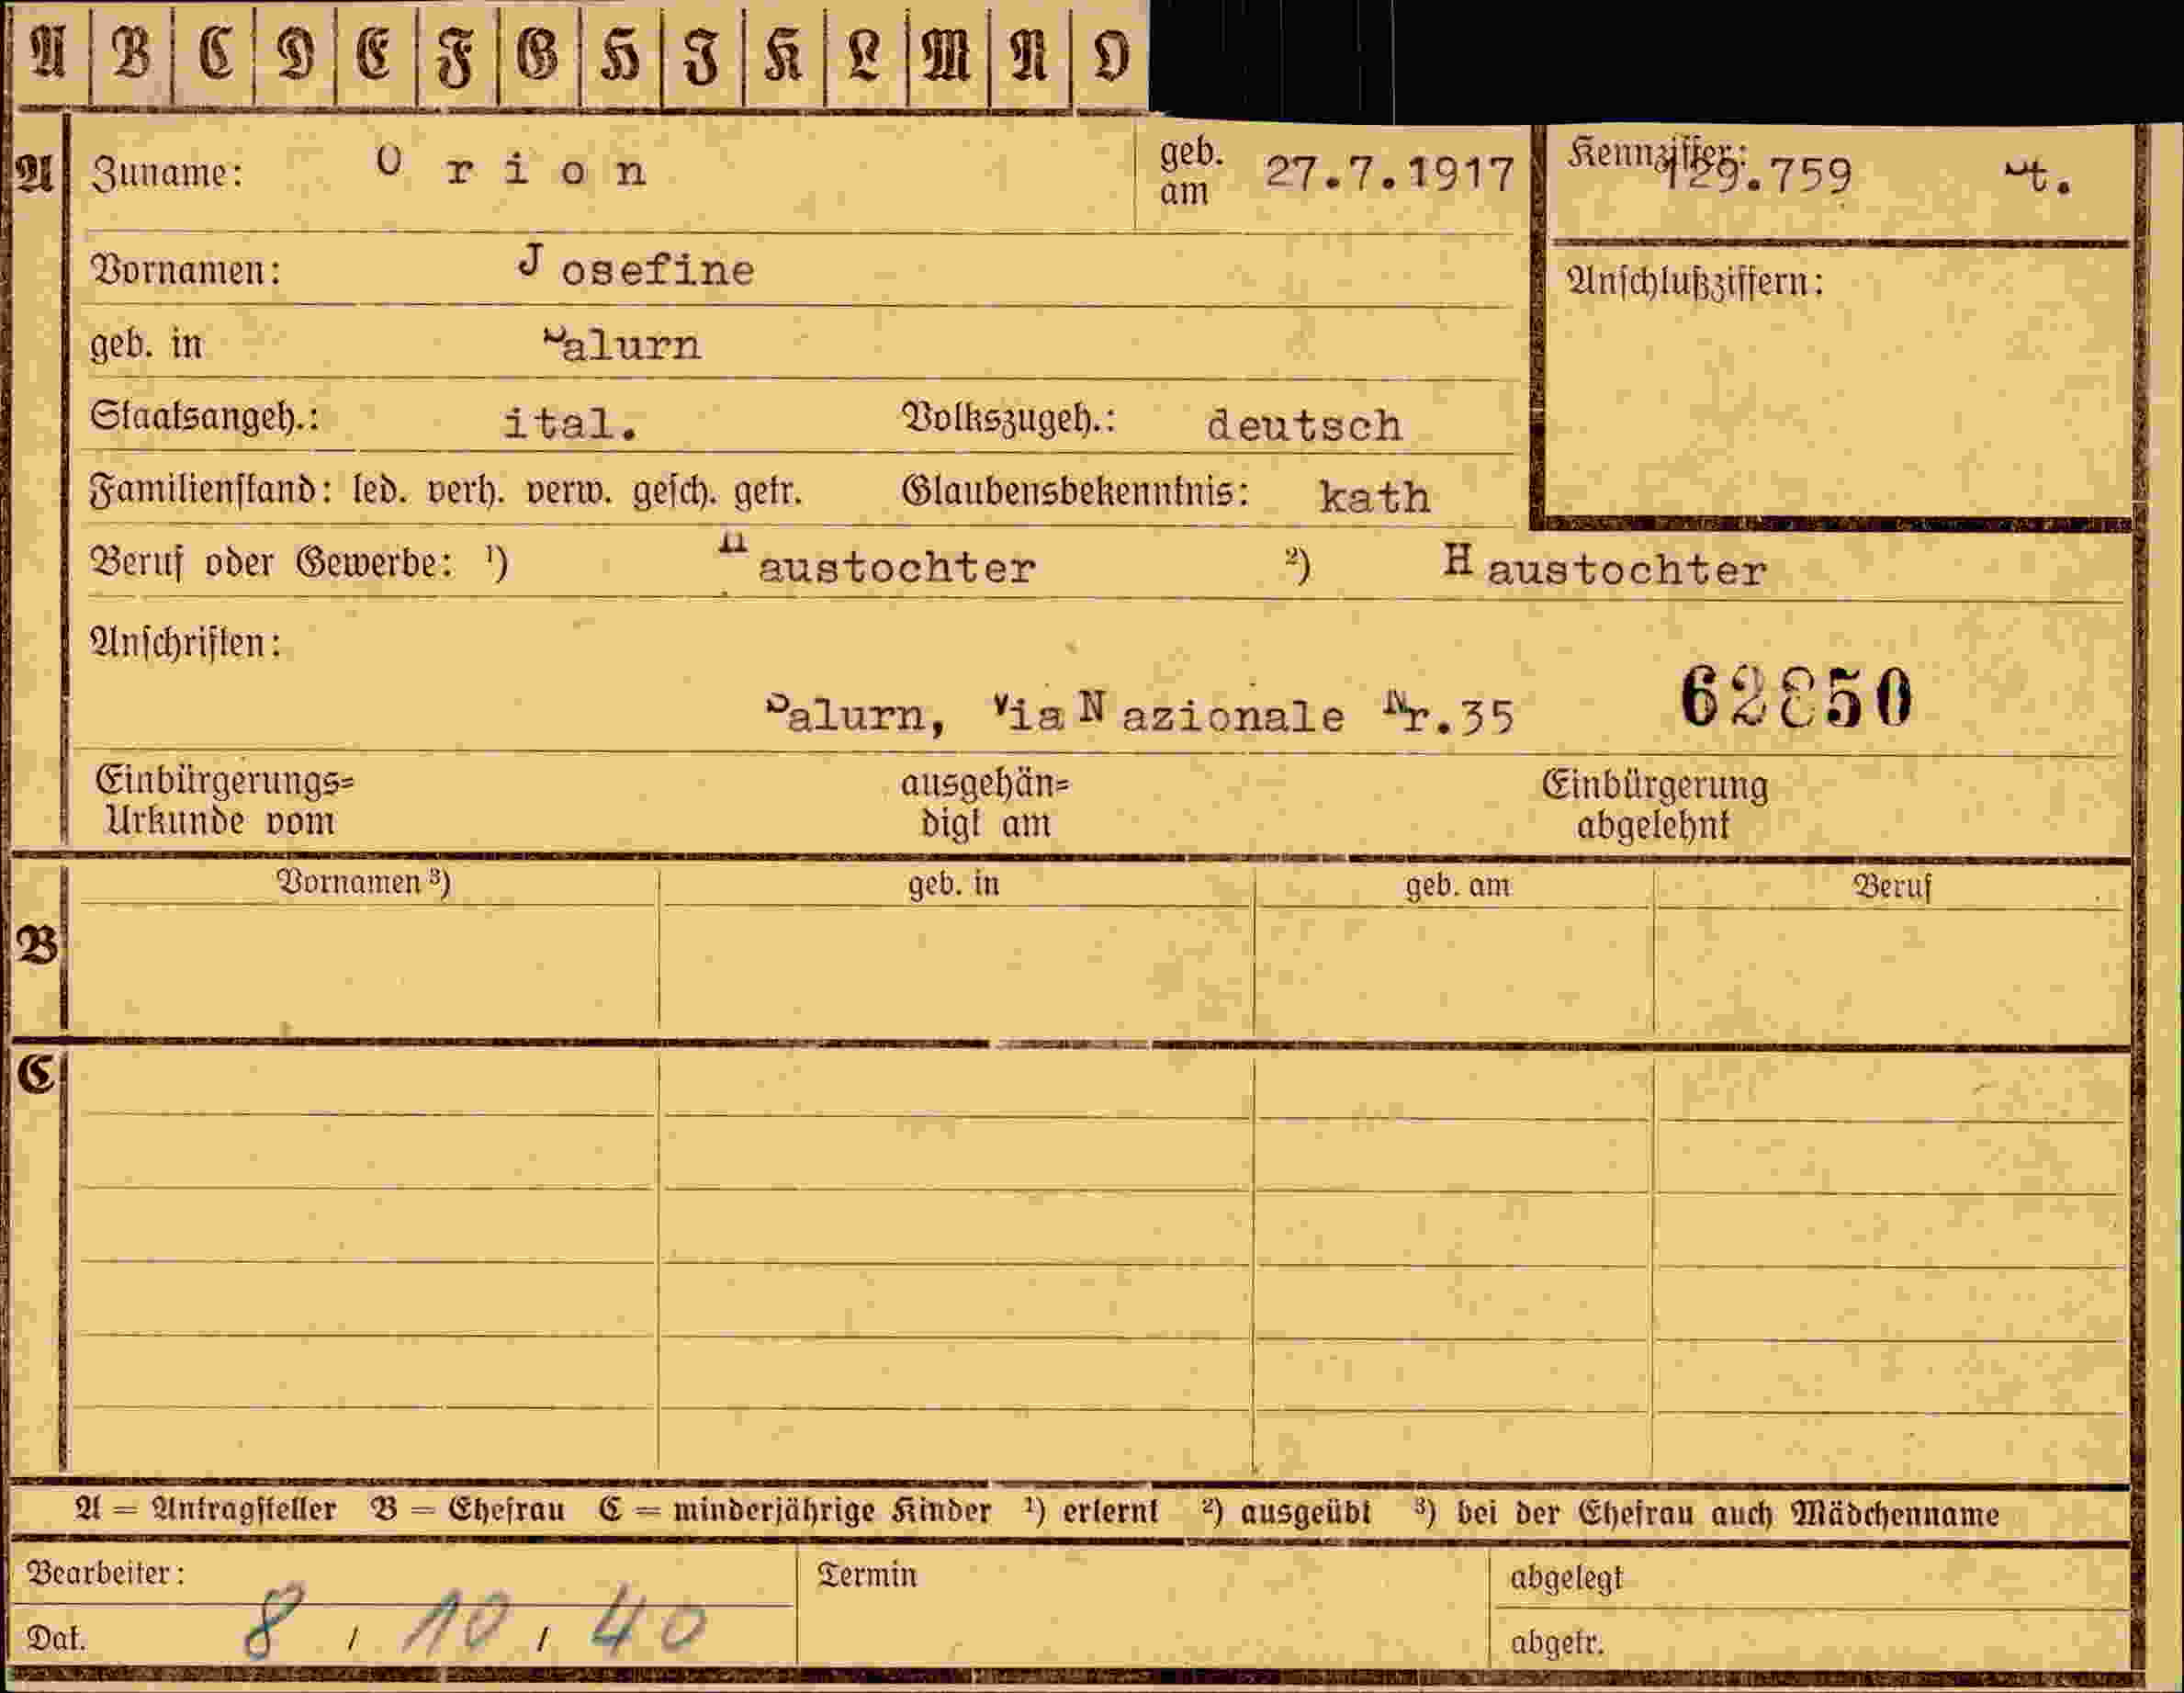 A B C D E F G H I K L M N O
A Zuname: Orion geb. am 27.7.1917 Kennziffer: 129.759
Vornamen: Josefine Anschlußziffern:
geb. in Salurn
Staatsangeh.: ital. Volkszugeh.: deutsch
Familienstand: led. verh. verw. gesch. getr. Glaubensbekenntnis: kath
Beruf oder Gewerbe: ¹) Haustochter ²) Haustochter
Anschriften:
Salurn, Via Nazionale Nr.35 62850
Einbürgerungs= ausgehän= Einbürgerung
Urkunde vom digt am abgelehnt
Vornamen ³) geb. in geb. am Beruf
B
C
A = Antragsteller B = Ehefrau C = minderjährige Kinder ¹) erlernt ²) ausgeübt ³) bei der Ehefrau auch Mädchenname
Bearbeiter: Termin abgelegt
Dat. 8 / 10 / 40 abgetr.